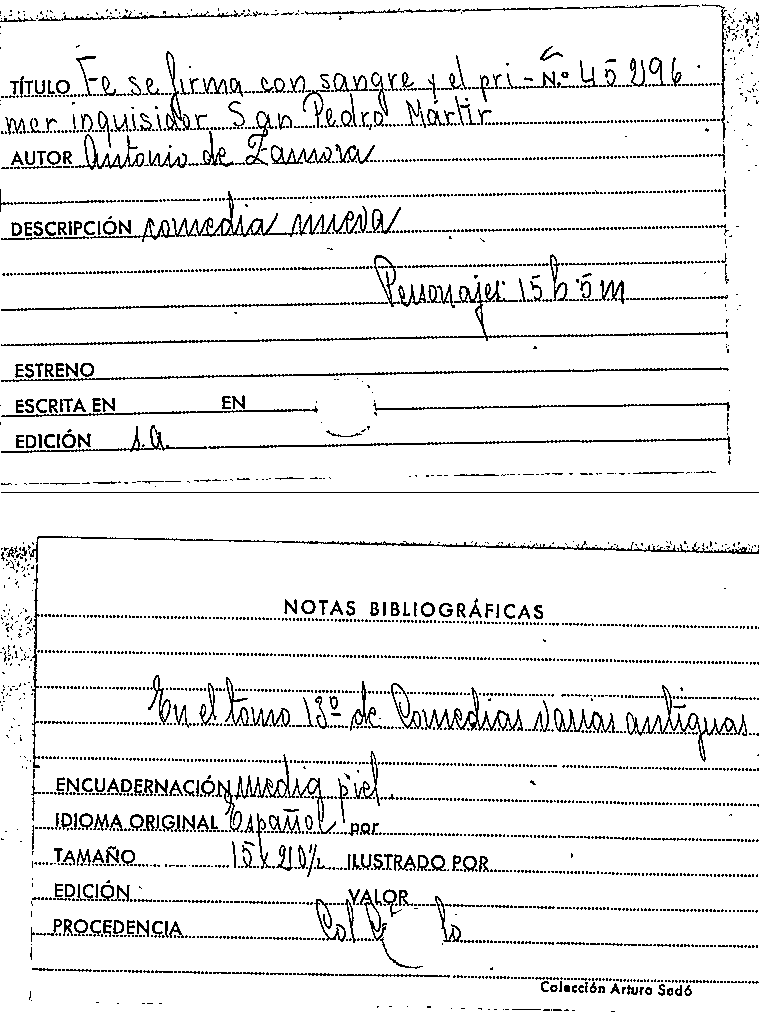 TÍTULO Fe se firma con sangre y el pri- N.º 45296
mer inquisidor San Pedro Mártir
AUTOR Antonio de Zamora
DESCRIPCIÓN comedia nueva
Personajes: 15 h. 5 m
ESTRENO
ESCRITA EN EN
EDICIÓN s.a.
NOTAS BIBLIOGRÁFICAS
En el tomo 13º de Comedias varias antiguas
ENCUADERNACIÓN media piel.
IDIOMA ORIGINAL Español por
TAMAÑO 15 x 20 ILUSTRADO POR
EDICIÓN VALOR
PROCEDENCIA Col
Colección Arturo Sedó